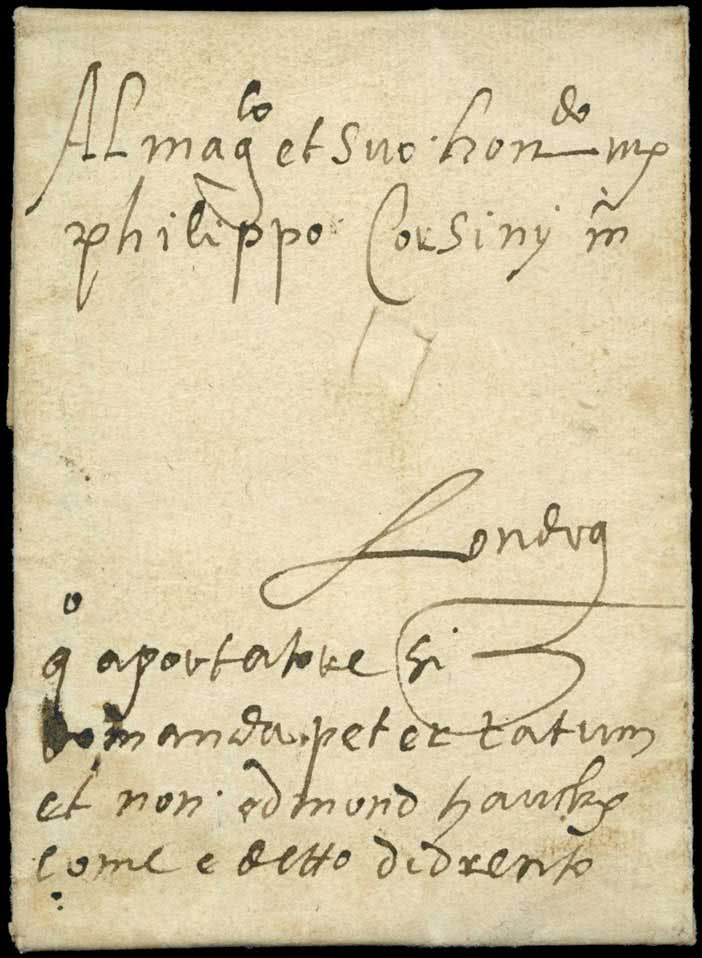 Al mag^co et suo hon^do m^r
philippo Corsinj in
17
Londra
q^o aportatore si
domanda peter tatum
et non edmond
come e detto didrento